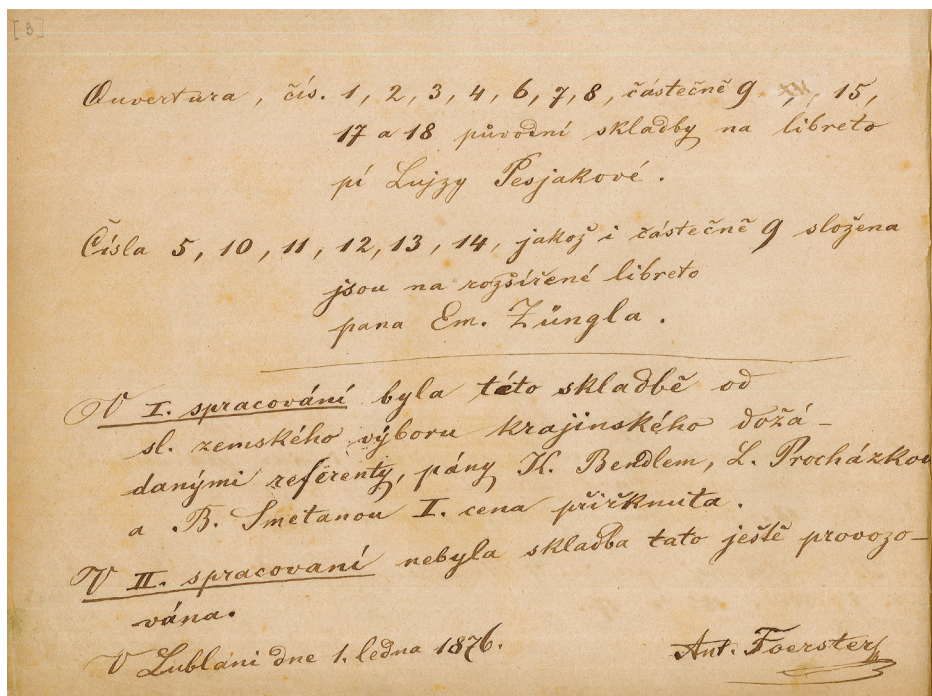 [3]
Ouvertura, čís. 1, 2, 3, 4, 6, 7, 8, částečně 9, 15,
17 a 18 původní skladby na libreto
pí Lujzy Pesjakové.
Čísla 5, 10, 11, 12, 13, 14, jakož i částečně 9 složena
jsou na rozšířené libreto
pana Em. Züngla.
V I. spracování byla této skladbě od
sl. zemského výboru krajinského dožá-
danými referenty, pány K. Bendlem, L. Procházkou
a B. Smetanou I. cena přiřknuta.
V II. spracovaní nebyla skladba tato ještě provozo-
vána.
V Lublani dne 1. ledna 1876.
Ant. Foerster